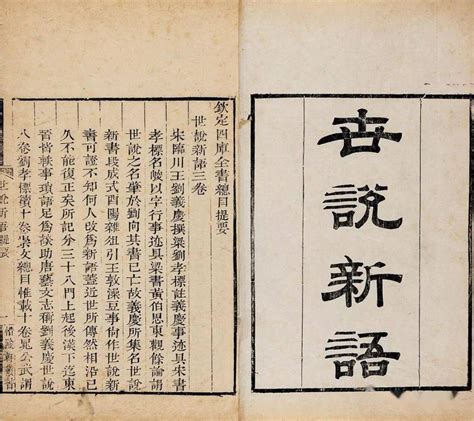 世說新語
欽定四庫全書總目提要
世說新語三卷
宋臨川王劉義慶撰梁劉孝標註義慶事迹具宋書
孝標名峻以字行事迹具梁書黃伯思東觀餘論謂
世說之名肇於劉向其書已亡故義慶所集名世說
新書段成式酉陽雜俎引王敦澡豆事尚作世說新
書可證不知何人改爲新語蓋近世所傳然相沿已
久不能復正矣所記分三十八門上起後漢下迄東
晉皆軼事瑣語足爲談助唐藝文志稱劉義慶世說
八卷劉孝標續十卷崇文總目惟載十卷晁公武謂
世說新語提要